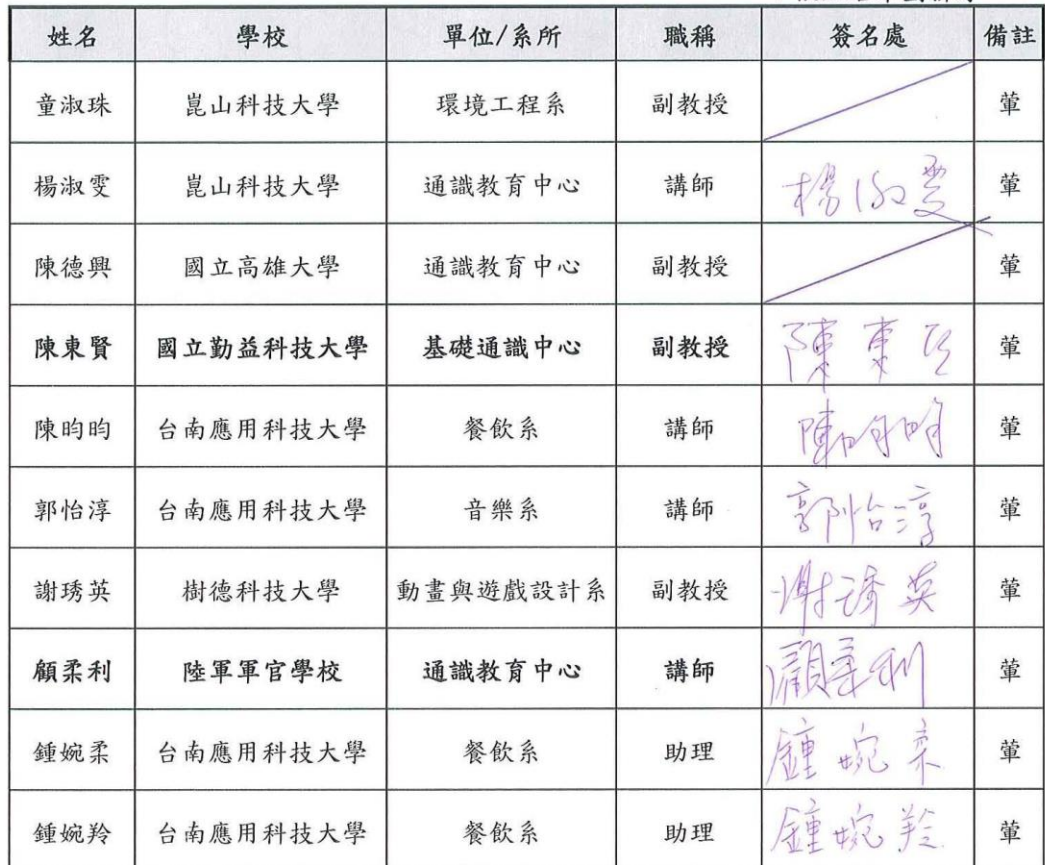 姓名 學校 單位/系所 職稱 簽名處 備註
童淑珠 崑山科技大學 環境工程系 副教授 葷
楊淑雯 崑山科技大學 通識教育中心 講師 楊淑雯 葷
陳德興 國立高雄大學 通識教育中心 副教授 葷
陳東賢 國立勤益科技大學 基礎通識中心 副教授 陳東賢 葷
陳昀昀 台南應用科技大學 餐飲系 講師 陳昀昀 葷
郭怡淳 台南應用科技大學 音樂系 講師 郭怡淳 葷
謝琇英 樹德科技大學 動畫與遊戲設計系 副教授 謝琇英 葷
顧柔利 陸軍軍官學校 通識教育中心 講師 顧柔利 葷
鍾婉柔 台南應用科技大學 餐飲系 助理 鍾婉柔 葷
鍾婉羚 台南應用科技大學 餐飲系 助理 鍾婉羚 葷